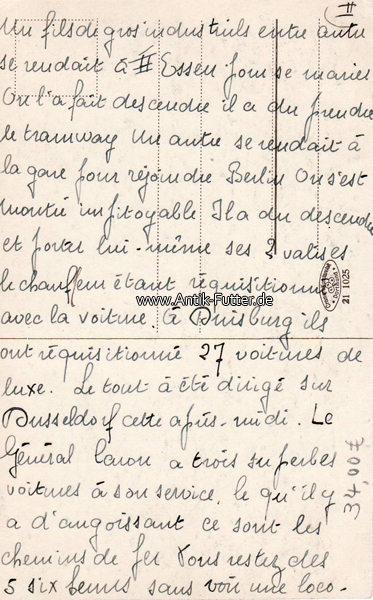 II
Un fils de gros industriels entre autre
se rendait à Essen pour se marier
On l'a fait descendre il a du prendre
le tramway Un autre se rendait à
la gare pour rejoindre Berlin On s'est
montré impitoyable Il a du descendre
et porter lui-même ses 2 valises
le chauffeur étant réquisitionné
www.Antik-Futter.de
21 1025
avec la voiture. A Duisburg ils
ont réquisitionné 27 voitures de
luxe. Le tout a été dirigé sur
Dusseldorf cette après-midi. Le
Général Caron a trois superbes
voitures à son service. le qu'il y
a d'angoissant ce sont les
chemins de fer Vous restez des
5 six heures sans voir une loco-
34,00€